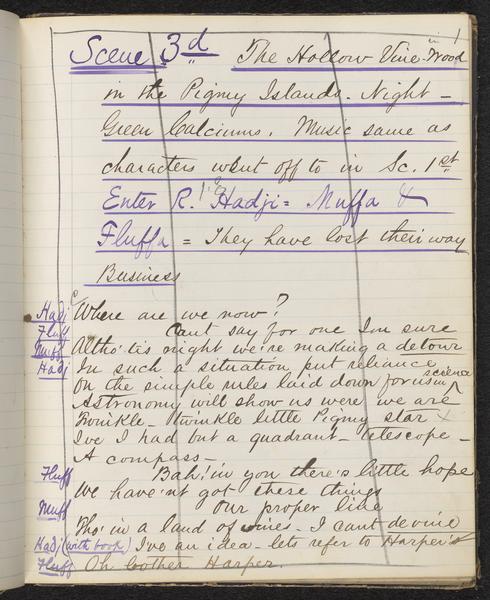 in 1
Scene 3d The Hollow Vine-Wood
in the Pigmy Islands. Night -
Green Calciums. Music same as
characters went off to in Sc. 1st
Enter R. Hadji = Muffa &
Fluffa = They have lost their way
Business
Hadj Where are we now?
Fluff Cant say for one Im sure
Muff Altho' tis night we're making a detour
Hadj In such a situation put reliance
On the simple rules laid down for us in science
Astronomy will show us were we are
Twinkle - twinkle little Pigmy star x
Ive I had but a quadrant - telescope -
A compass -
Fluff Bah! in you there's little hope
We have'nt got these things
Muff Our proper line
Tho' in a land of vines - I cant devine
Hadj (with book) I've an idea - lets refer to Harper's
Fluff Oh bother Harper.